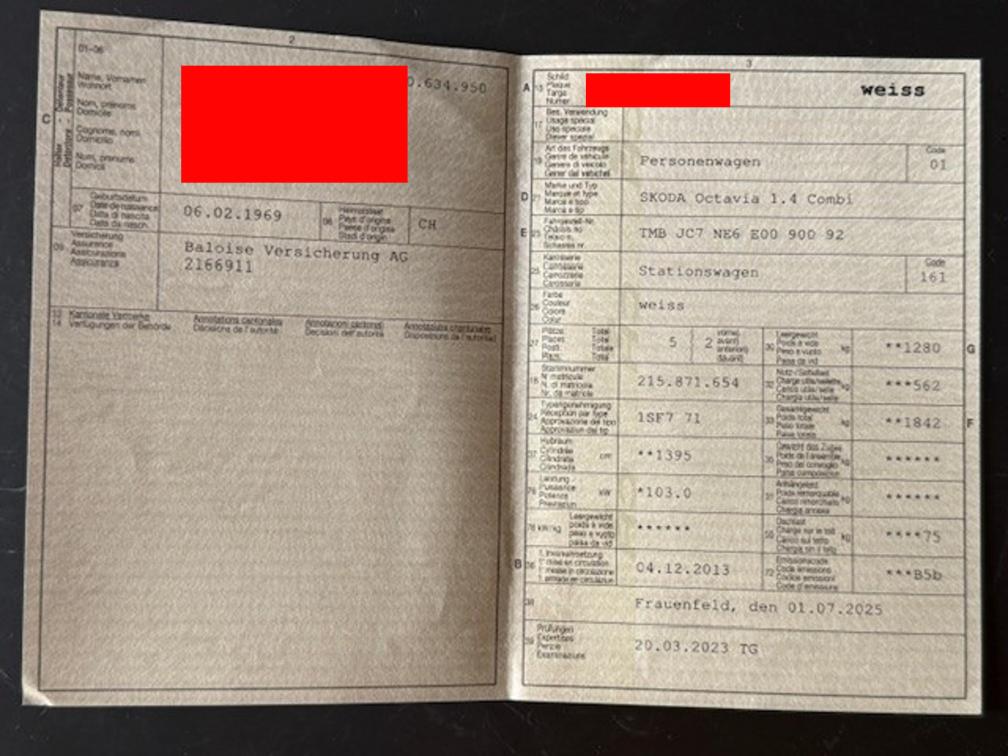 2
01-06
Name, Vornamen
Wohnort
Nom, prénoms
Domicile
Cognome, nomi
Domicilio
Nom, prenums
Domicil
C
0.634.950
07
Geburtsdatum
Date de naissance
Data di nascita
Data da nasch.
06.02.1969
08
Heimatstaat
Pays d'origine
Paese d'origine
Stadi d'origin
CH
09
Versicherung
Assurance
Assicurazione
Assicuranza
Baloise Versicherung AG
2166911
13
14
Kantonale Vermerke
Verfügungen der Behörde
Annotations cantonales
Décisions de l'autorité
Annotazioni cantonali
Decisioni dell'autorità
Annotaziuns chantunalas
Disposiziuns da l'autoritad
3
A
15
Schild
Plaque
Targa
Numer
weiss
17
Bes. Verwendung
Usage spécial
Uso speciale
Diever spezial
19
Art des Fahrzeugs
Genre de véhicule
Genere di veicolo
Gener dal vehichel
Personenwagen
Code
01
D
21
Marke und Typ
Marque et type
Marca e tipo
Marca e tip
SKODA Octavia 1.4 Combi
E
23
Fahrgestell-Nr.
Châssis no
Telaio n.
Schassis nr.
TMB JC7 NE6 E00 900 92
25
Karosserie
Carrosserie
Carrozzeria
Carossaria
Stationswagen
Code
161
26
Farbe
Couleur
Colore
Colur
weiss
27
Plätze: Total
Places: Total
Posti: Totale
Plazs: Total
5
2
vorne)
avant)
anteriori)
davant)
30
Leergewicht
Poids à vide
Peso a vuoto
Paisa da vid
kg
**1280
G
18
Stammnummer
N° matricule
N. di matricola
Nr. da matricla
215.871.654
32
Nutz-/Sattellast
Charge utile/sellette
Carico utile/sella
Chargia utila/sella
***562
24
Typengenehmigung
Réception par type
Approvazione del tipo
Approvaziun dal tip
1SF7 71
33
Gesamtgewicht
Poids total
Peso totale
Paisa totala
**1842
F
37
Hubraum
Cylindrée
Cilindrata
Cilindrada
cm³
**1395
35
Gewicht des Zuges
Poids de l'ensemble
Peso del convoglio
Paisa cumposiziun
kg
******
76
Leistung
Puissance
Potenza
Prestaziun
kW
*103.0
31
Anhängelast
Poids remorquable
Carico rimorchiato
Chargia annexa
kg
******
78 kW/kg
Leergewicht
poids à vide
peso a vuoto
paisa da vid
******
55
Dachlast
Charge sur le toit
Carico sul tetto
Chargia sin il tetg
kg
****75
B
36
1. Inverkehrsetzung
1re mise en circulation
1. messa in circolazione
1. entrada en circulaziun
04.12.2013
72
Emissionscode
Code émissions
Codice emissioni
Code d'emissiuns
***B5b
38
Frauenfeld, den 01.07.2025
39
Prüfungen
Expertises
Perizie
Examinaziuns
20.03.2023 TG